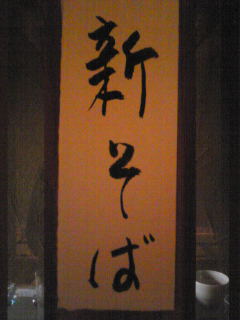 新そば